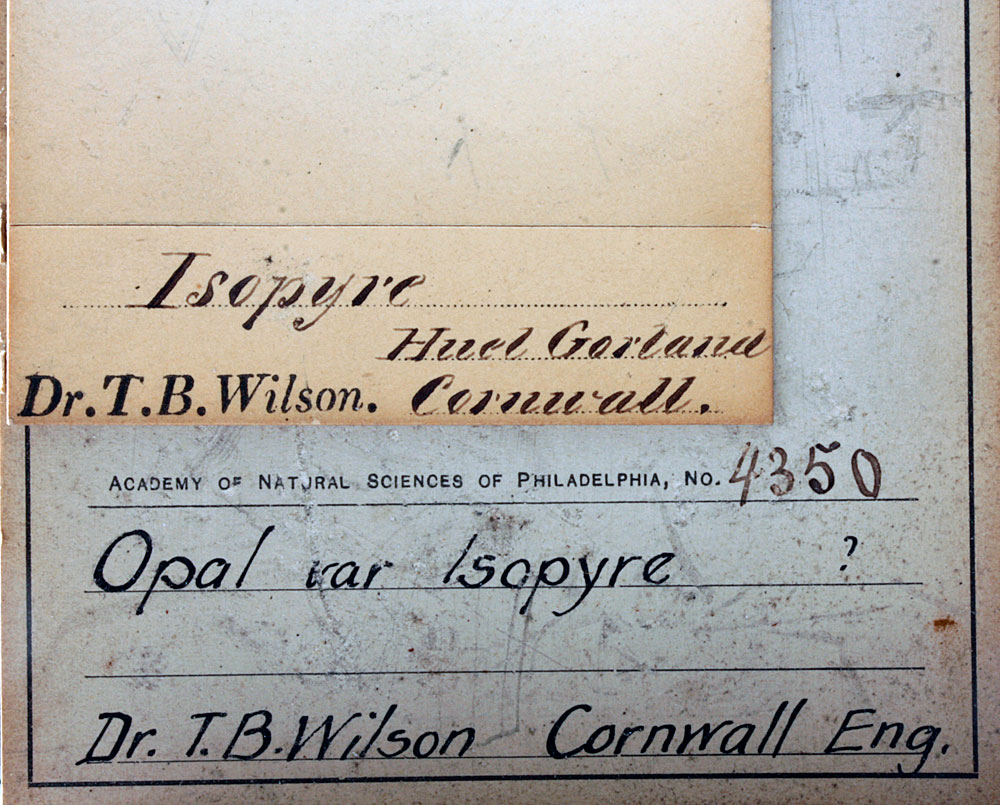 Isopyre
Huel Gorland
Dr. T. B. Wilson. Cornwall.
ACADEMY OF NATURAL SCIENCES OF PHILADELPHIA, NO. 4350
Opal var Isopyre ?
Dr. T. B. Wilson Cornwall Eng.